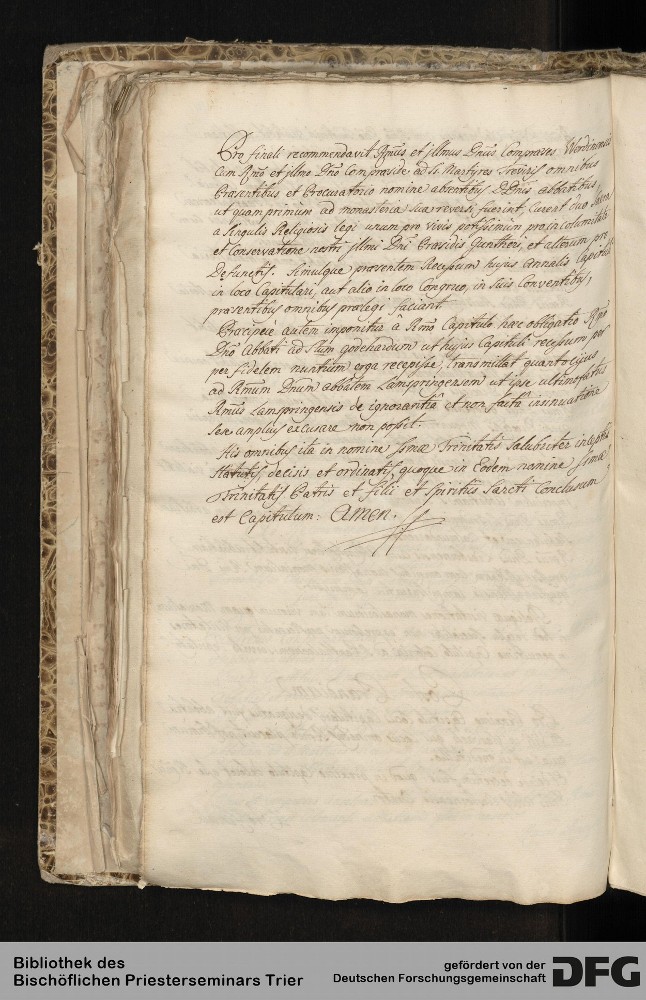 Pro finali recommendavit Rmus et Illmus Dnus Compraeses Werdinensis
cum Rmo et Illmo Dno Compraeside ad SS. Martyres Treviris omnibus
Praesentibus et Procuratorio nomine absentibus D.Dnis abbatibus,
ut quamprimum ad monasteria sua reversi fuerint, curent duo Sacra
a Singulis Religiosis legi unum pro vivis potissimum pro incolumitate
et Conservatione nostri Illmi Dni Praesidis Guntheri, et alterum pro
Defunctis. Simulque praesentem Recessum hujus annalis Capituli
in loco Capitulari, aut alio in loco Congruo, in suis Conventibus,
praesentibus omnibus praelegi faciant.
Praecipue autem imponitur â Rmo Capitulo haec obligatio Rmo
Dno Abbati ad Stum Godehardum ut hujus Capituli recessum per
per fidelem nuntium erga recepisse, transmittat quantocijus
ad Rmum Dnum abbatem Lamspringensem ut ipse ultimofatus
Rmus Lamspringensis de ignorantiâ et non factâ insinuatione
sese amplius excusare non possit.
His omnibus ita in nomine ssmae Trinitatis Salubriter inceptis
Statutis, decisis et ordinatis, quoque in Eodem nomine ssmae
Trinitatis Patris et filii et Spiritûs Sancti Conclusum
est Capitulum: Amen.
Bibliothek des
Bischöflichen Priesterseminars Trier
gefördert von der
Deutschen Forschungsgemeinschaft
DFG